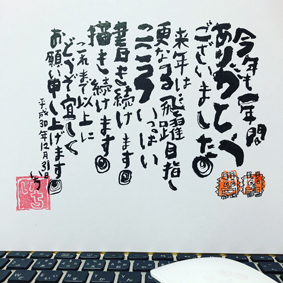 今年も一年間
ありがとう
ございました。
来年は
更なる飛躍目指し
こころいっぱい
書き続けます。
描き続けます。
これまで以上に
どうぞ宜しく
お願い申し上げます。
平成30年12月31日